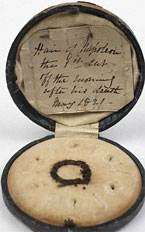 Hair of Napoleon
the 1st cut
off the morning
after his death
May 1821